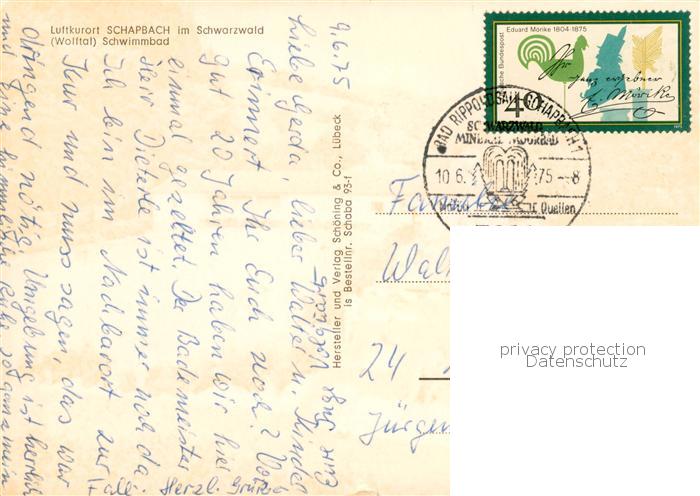 Luftkurort SCHAPBACH im Schwarzwald
(Wolftal) Schwimmbad
9.6.75
Liebe Gerda, lieber Walter u. Kinder
Erinnert Ihr Euch noch? Vor
gut 20 Jahren haben wir hier
einmal gezeltet. Der Bademeister
Herr Dieterle ist immer noch da
Ich bin im Nachbarort zur
Kur und muss sagen, das war
dringend nötig. Umgebung ist herrlich
und eine himmlische Ruhe so ganz mein
Fall. Herzl. Grüsse
Euch
Hersteller und Verlag Schöning & Co., Lübeck
is Bestellnr. Schaba 93-f
Eduard Mörike 1804-1875
sche Bundespost
40
E. Mörike
BAD RIPPOLDSAU-SCHAPBACH 1
SCHWARZWALD
MINERAL-MOORBAD
10.6. 75-8
Quellen
Familie
Wal
24
Jürgen
privacy protection
Datenschutz